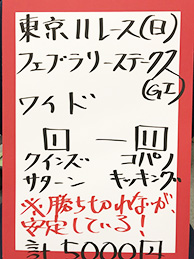 東京11レース(日)
フェブラリーステークス
(GI)
ワイド
1 — 11
クインズ コパノ
サターン キッキング
※勝ち切れなが、
安定している!
計5000円